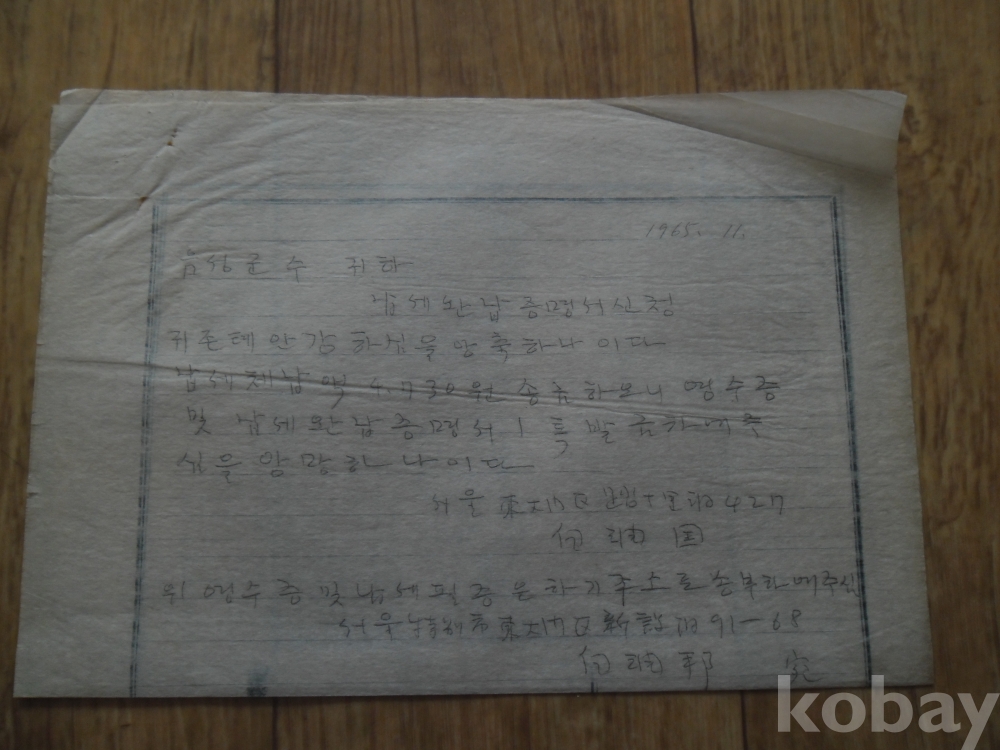 1965. 11.
군수 귀하
납세완납증명서신청
귀존데안강하심을앙축하나이다
납세체납액 4.730원 송금하오니 영수증
및 납세완납증명서 1 특발급하여주
심을앙망하나이다
서울 東大門区 427
위 영수증및납세필증은하기주소로송부하여주심
서울 特別市東大門区新設洞91-68
kobay